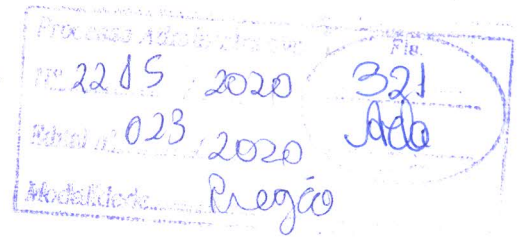 Processo Administrativo Fls.
Nº 2205 / 2020 321
Edital nº 023 / 2020
Modalidade Pregão